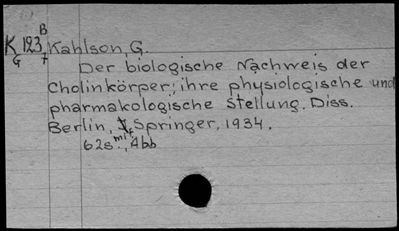 B
K 123 Kahlson, G.
G t
Der biologische Nachweis der
Cholinkörper; ihre physiologische und
pharmakologische Stellung. Diss.
Berlin, Springer, 1934.
62s. mit Abb